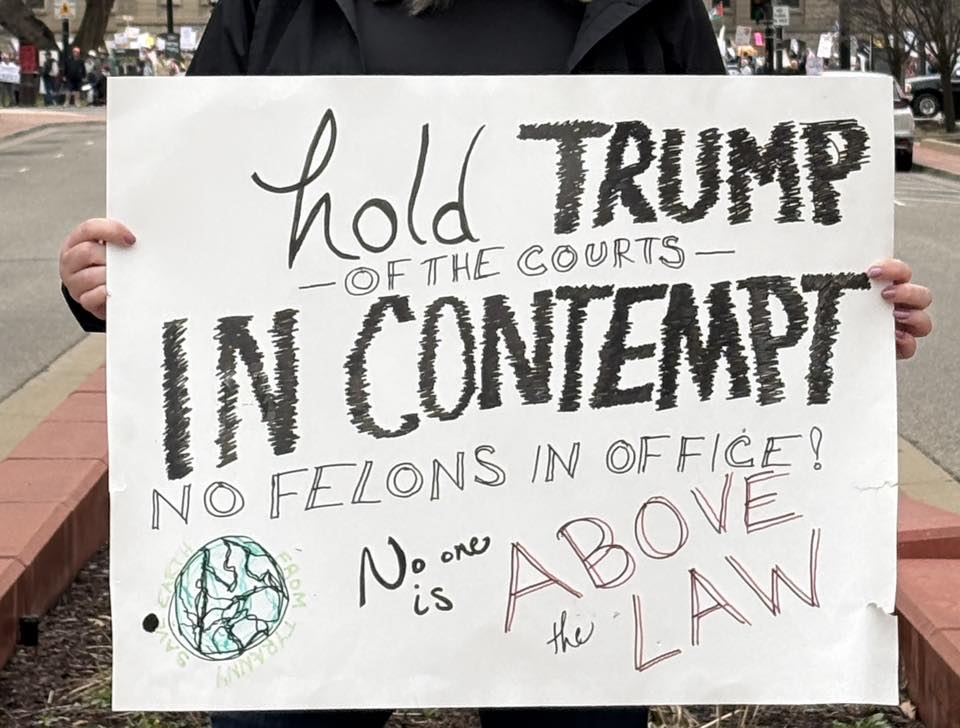 hold TRUMP
-OF THE COURTS-
IN CONTEMPT
NO FELONS IN OFFICE!
No one is ABOVE the LAW
SAVE EARTH FROM TYRANNY